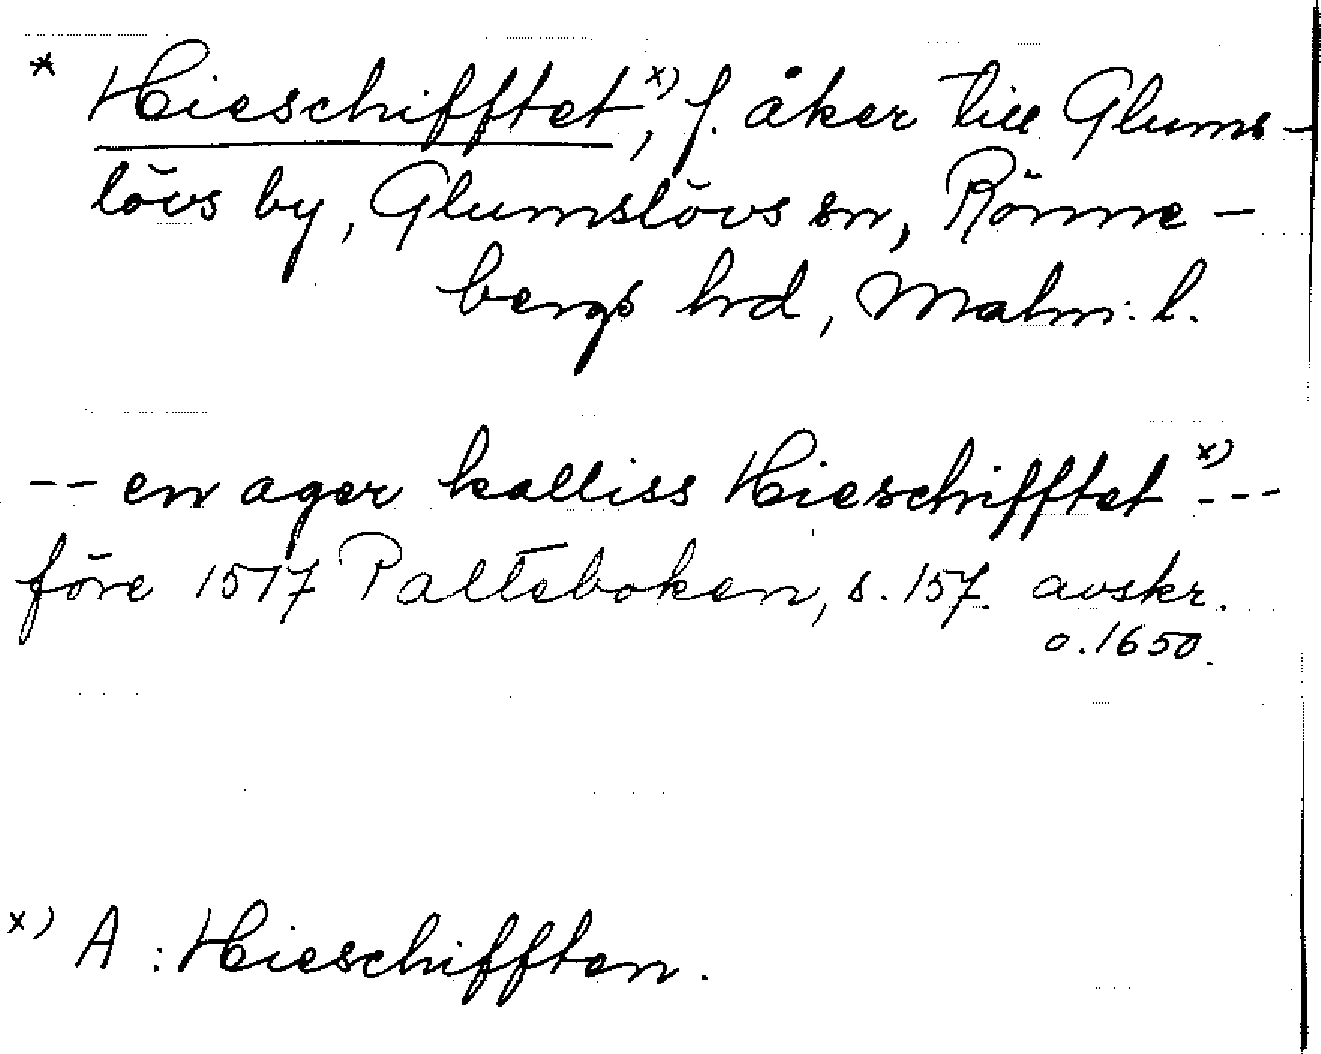 * Hieschifftet,x) f. åker till Glums-
lövs by, Glumslövs sn, Rönne-
bergs hrd, Malm: l.
-- en ager kalliss Hieschifftet x) ---
före 1517 Palteboken, s. 157. avskr.
o. 1650.
x) A : Hieschifften.